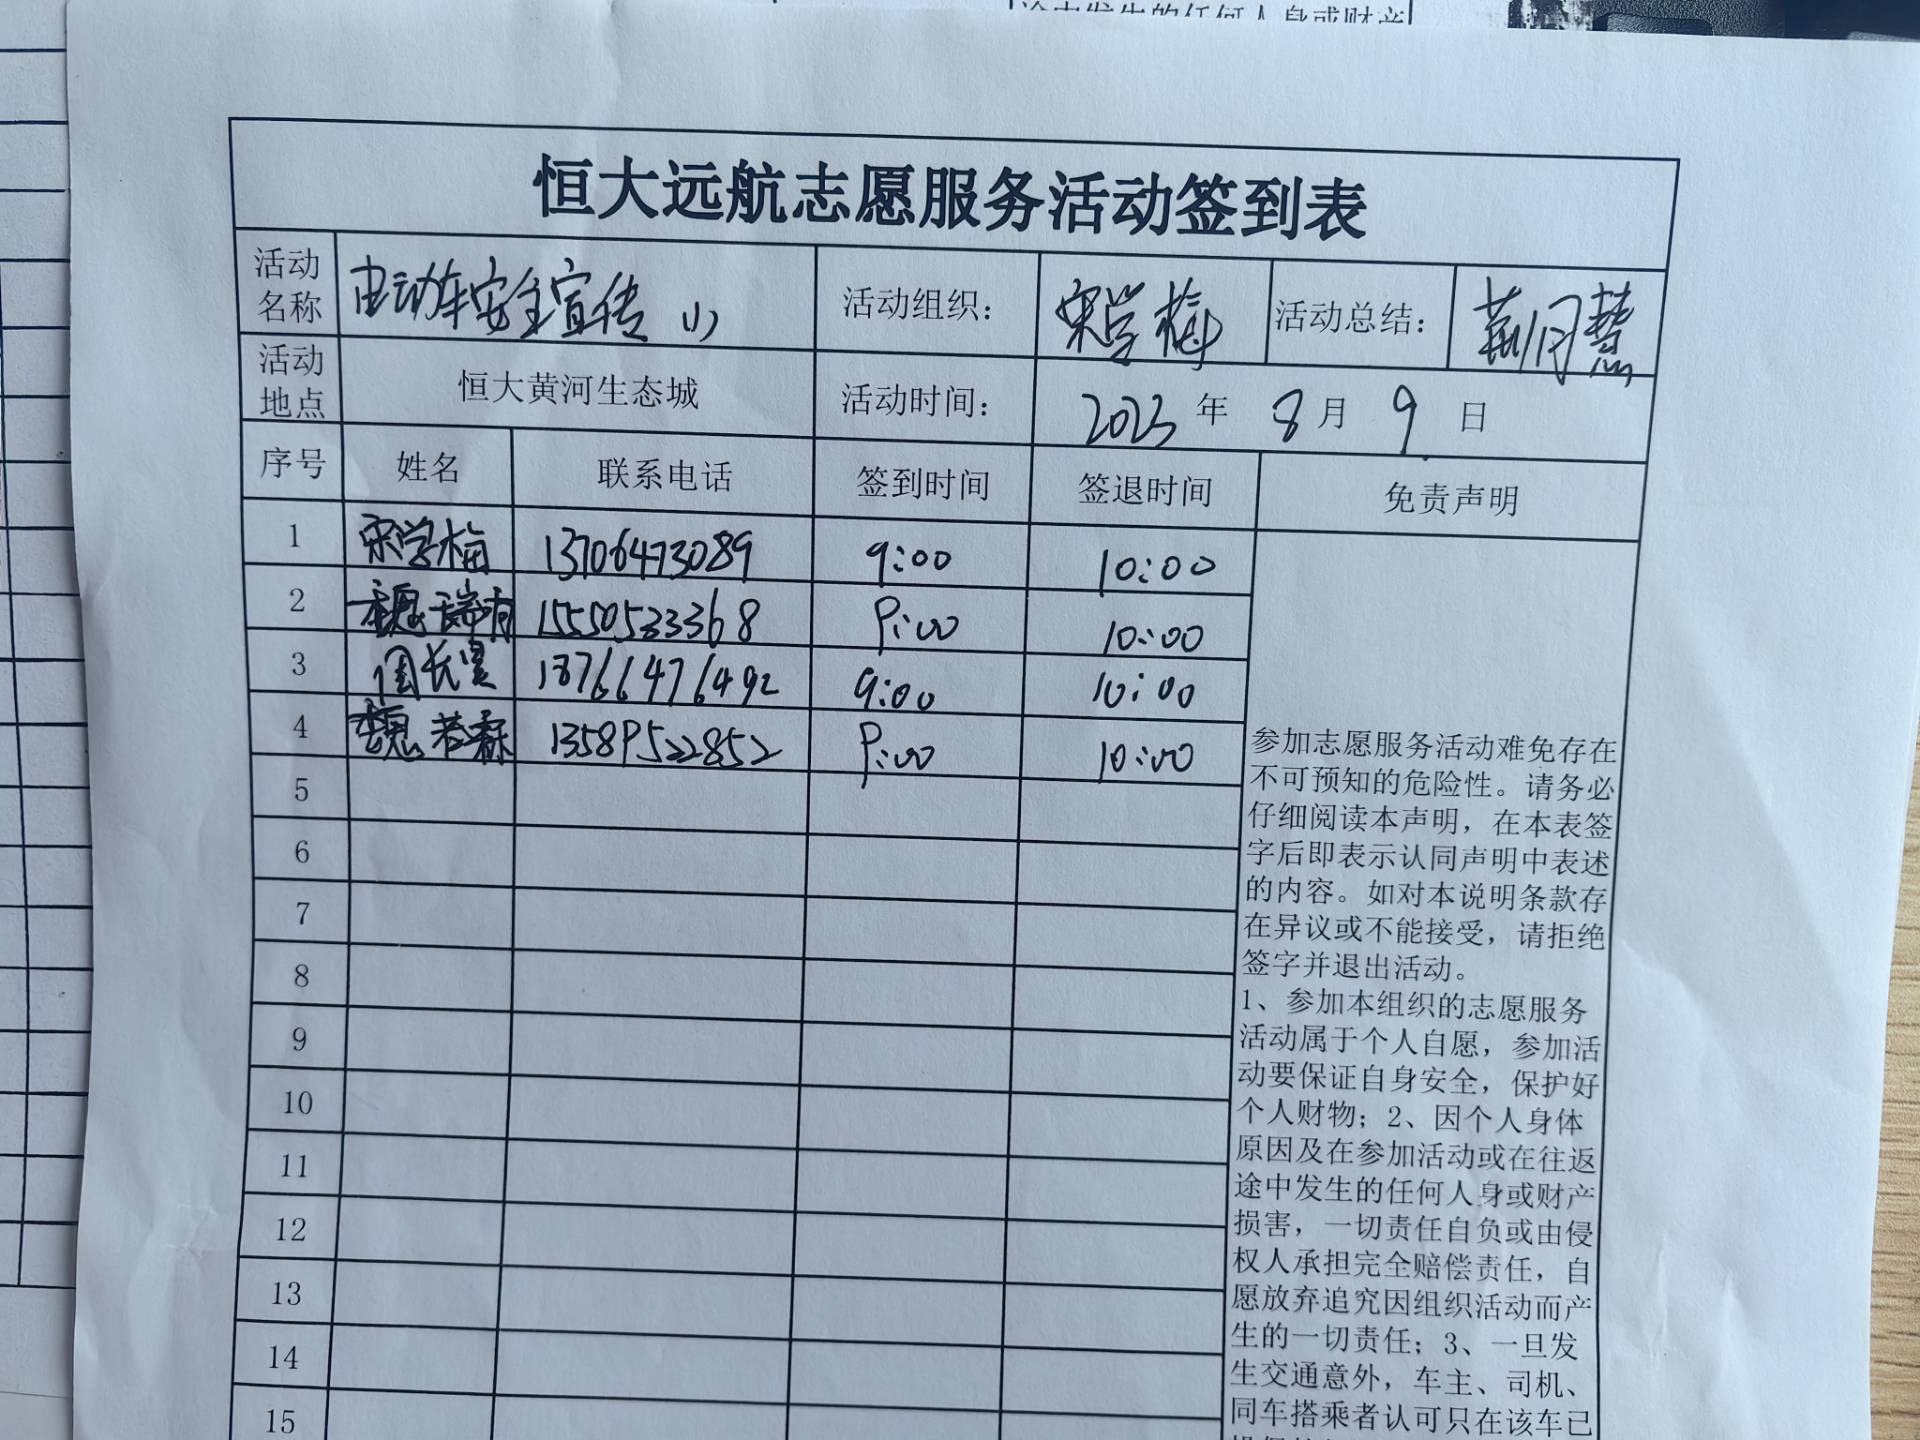 途中发生的任何人身或财产
恒大远航志愿服务活动签到表
活动名称 电动车安全宣传 (1) 活动组织： 宋学梅 活动总结： 荆月慧
活动地点 恒大黄河生态城 活动时间： 2023 年 8 月 9 日
序号 姓名 联系电话 签到时间 签退时间 免责声明
1 宋学梅 13706473089 9:00 10:00
2 魏瑞 15550533368 9:00 10:00
3 18766476492 9:00 10:00
4 魏若霖 13589522852 9:00 10:00
5
6
7
8
9
10
11
12
13
14
15
参加志愿服务活动难免存在
不可预知的危险性。请务必
仔细阅读本声明，在本表签
字后即表示认同声明中表述
的内容。如对本说明条款存
在异议或不能接受，请拒绝
签字并退出活动。
1、参加本组织的志愿服务
活动属于个人自愿，参加活
动要保证自身安全，保护好
个人财物；2、因个人身体
原因及在参加活动或在往返
途中发生的任何人身或财产
损害，一切责任自负或由侵
权人承担完全赔偿责任，自
愿放弃追究因组织活动而产
生的一切责任；3、一旦发
生交通意外，车主、司机、
同车搭乘者认可只在该车已